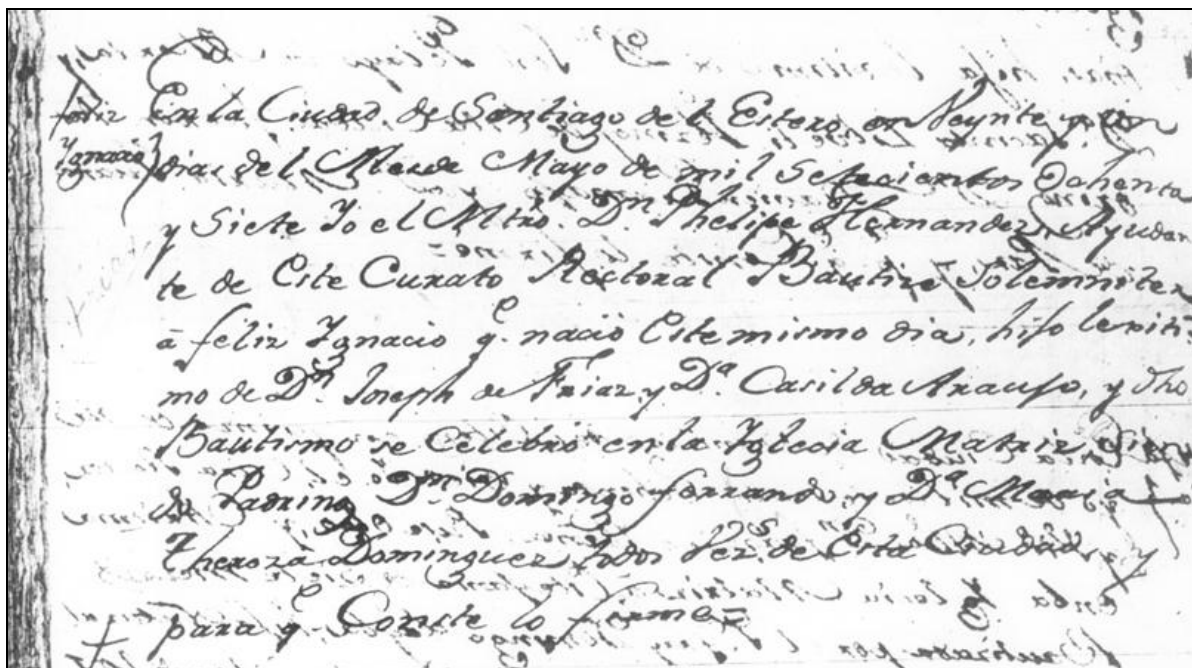 Feliz
Ygnacio
En la Ciudad de Santiago del Estero, en Veynte y un
dias del Mes de Mayo de mil Setecientos Ochenta
y Siete Yo el Mtro. Dn. Phelipe Hernandez, Ayudan
te de Este Curato Rectoral Bautize Solemniter
â feliz Ygnacio q.e nació Este mismo dia, hijo lexiti
mo de Dn. Joseph de Frias y Da. Casilda Araujo, y dho
Bautismo se Celebró en la Yglecia Matriz
de Padrinos Dn. Domingo ferrando y Da. Maria
Thereza Dominguez todos Vez.s de Esta Ciudad, y
para q.e Conste lo firme=